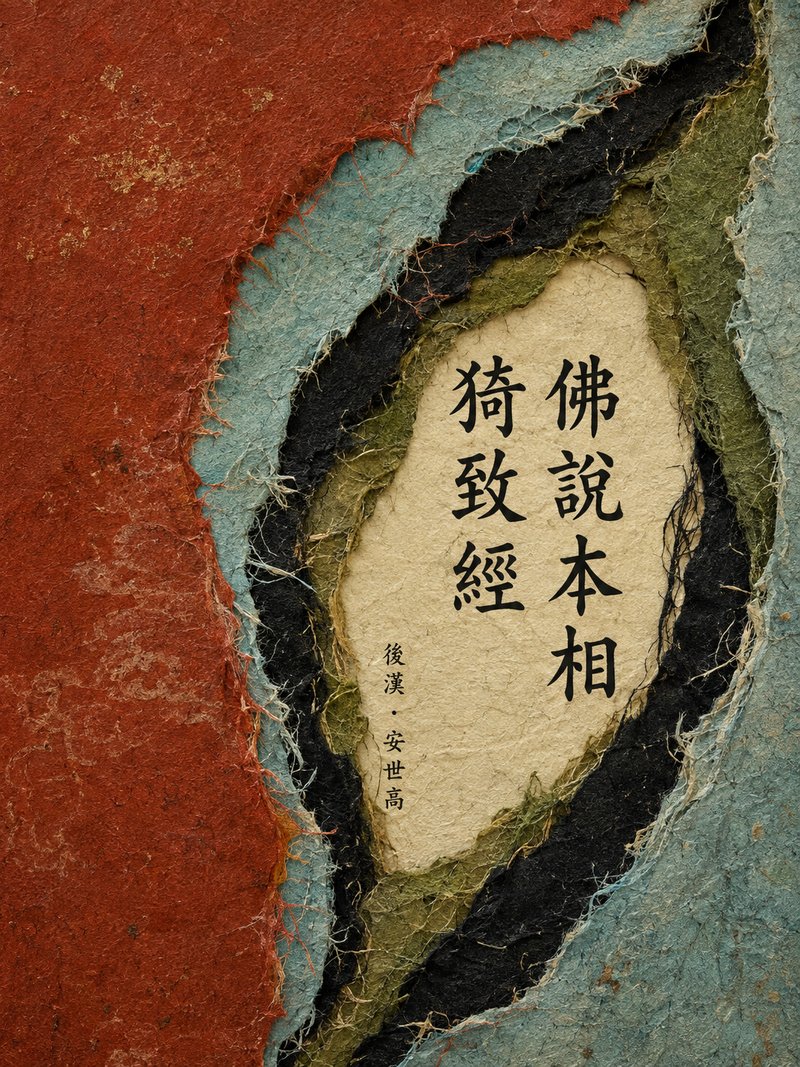 佛說本相
猗致經
後漢・安世高